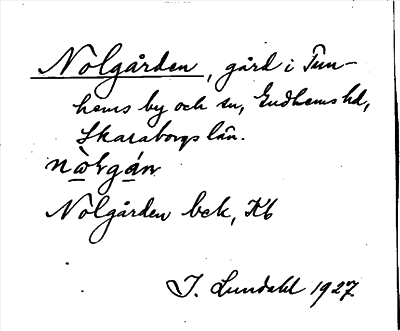 Nolgården, gård i Tun-
hems by och sn, Gudhems hd,
Skaraborgs län.
Nolgården bek, Kb
I. Lundahl 1927